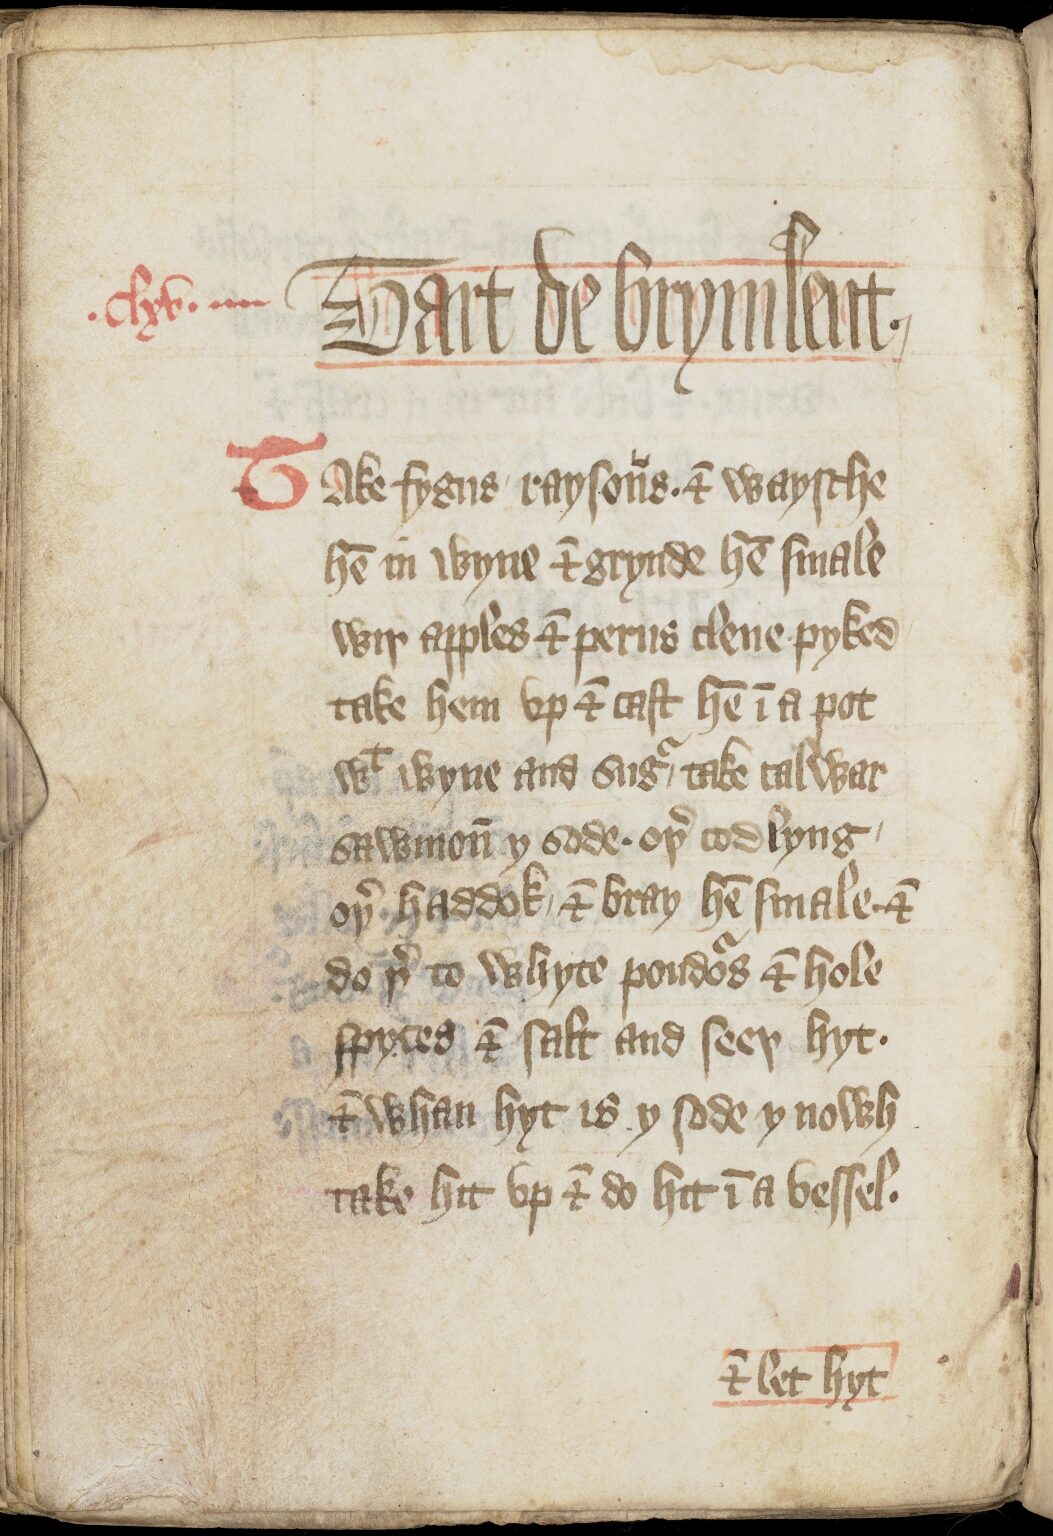 .clxv.
Tart de brymlent.
TAke fygus raysoūs. ⁊ waysche
hē in wyne ⁊ grynde hē smale
wiþ apples ⁊ perus clene pyked
take hem vp ⁊ cast hē ī a pot
wᵗ wyne and sugᵃ, take calwar
sawmon̄ y sode. oþ̓ codlyng,
oþ̓ haddok, ⁊ bray hē smale. ⁊
do þ̓ to whyte poudoᵃs ⁊ hole
spyces ⁊ salt and seeþ hyt.
⁊ whan hyt is y sode y nowh
take hit vp ⁊ do hit ī a vessel.
⁊ let hyt